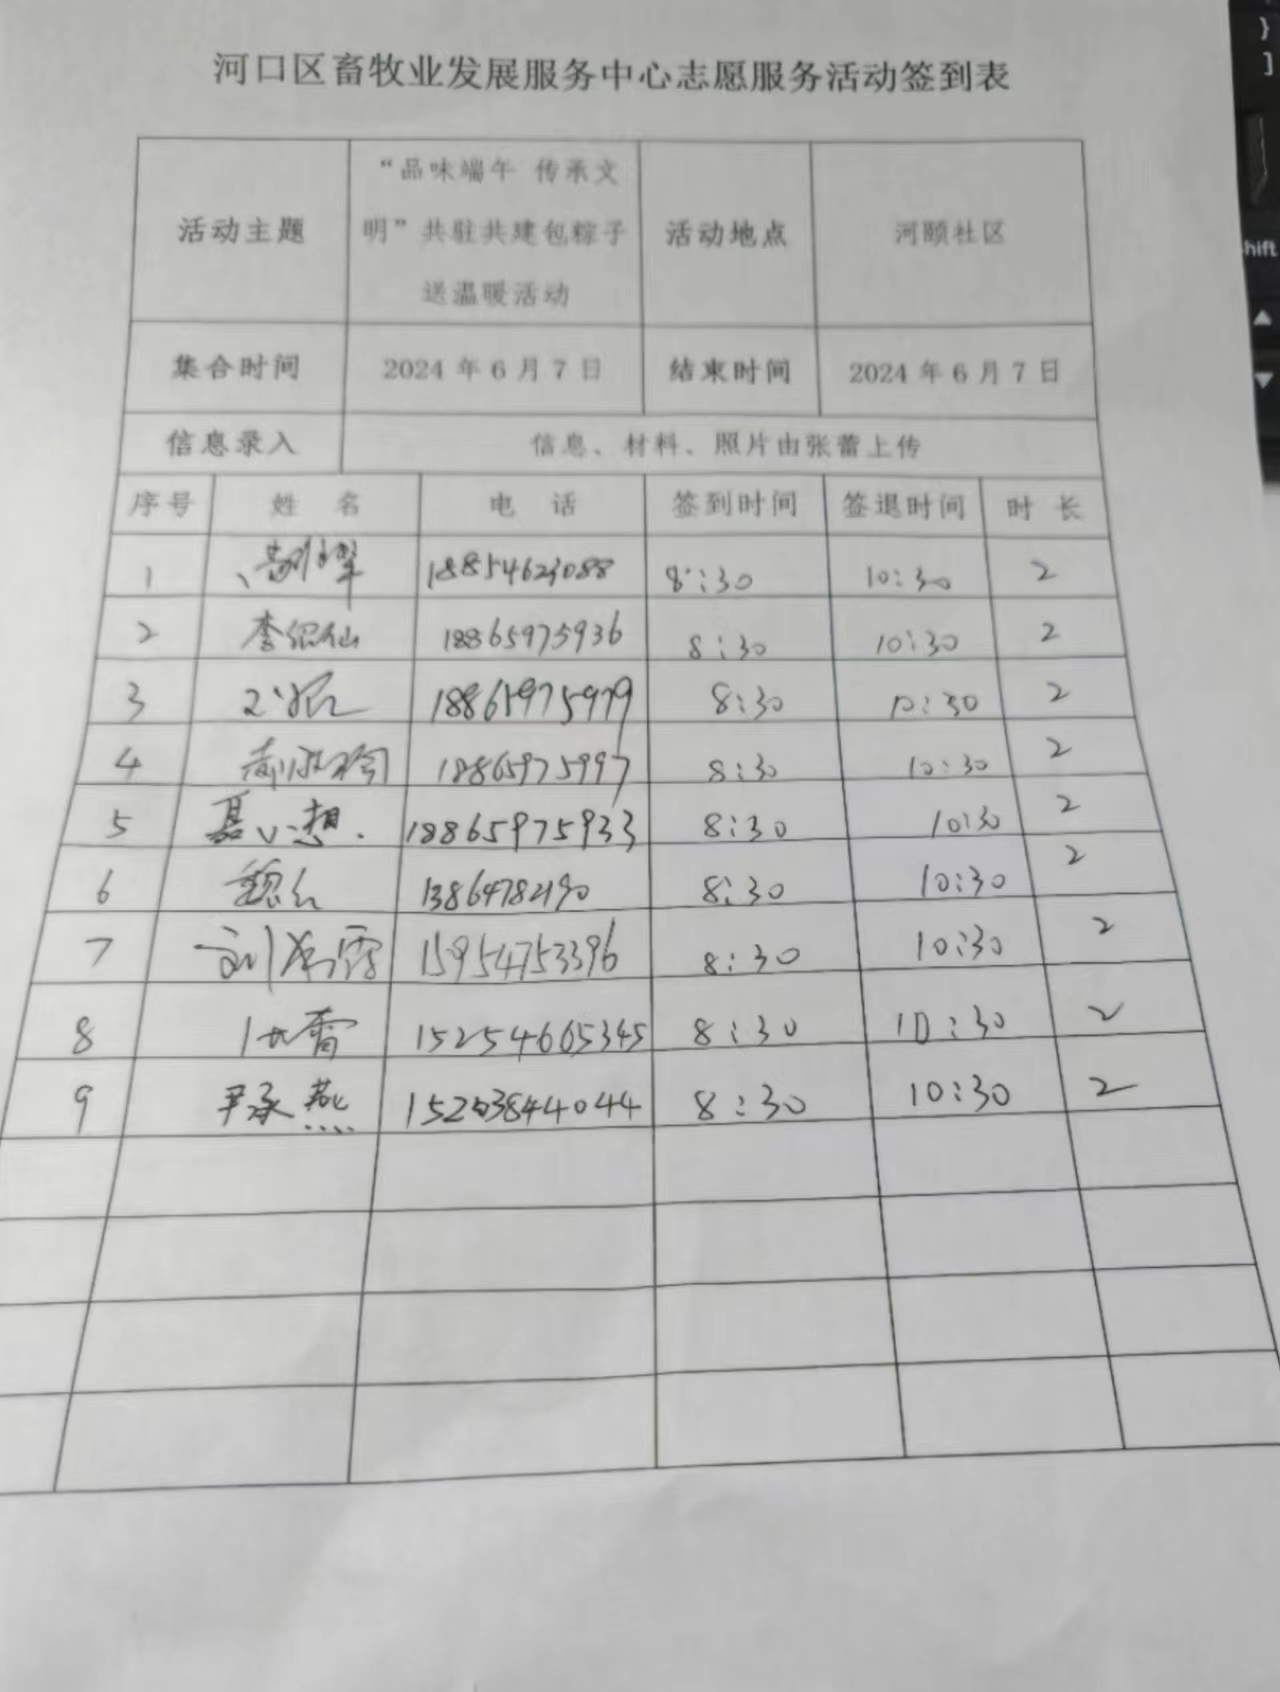 河口区畜牧业发展服务中心志愿服务活动签到表
活动主题 “品味端午 传承文明”共驻共建包粽子送温暖活动 活动地点 河颐社区
集合时间 2024年6月7日 结束时间 2024年6月7日
信息录入 信息、材料、照片由张蕾上传
序号 姓名 电话 签到时间 签退时间 时长
1 18854623088 8:30 10:30 2
2 18865975936 8:30 10:30 2
3 18865975979 8:30 10:30 2
4 18865975997 8:30 10:30 2
5 18865975933 8:30 10:30 2
6 8:30 10:30 2
7 15954753396 8:30 10:30 2
8 15254605345 8:30 10:30 2
9 尹承燕 8:30 10:30 2
}
]
shift